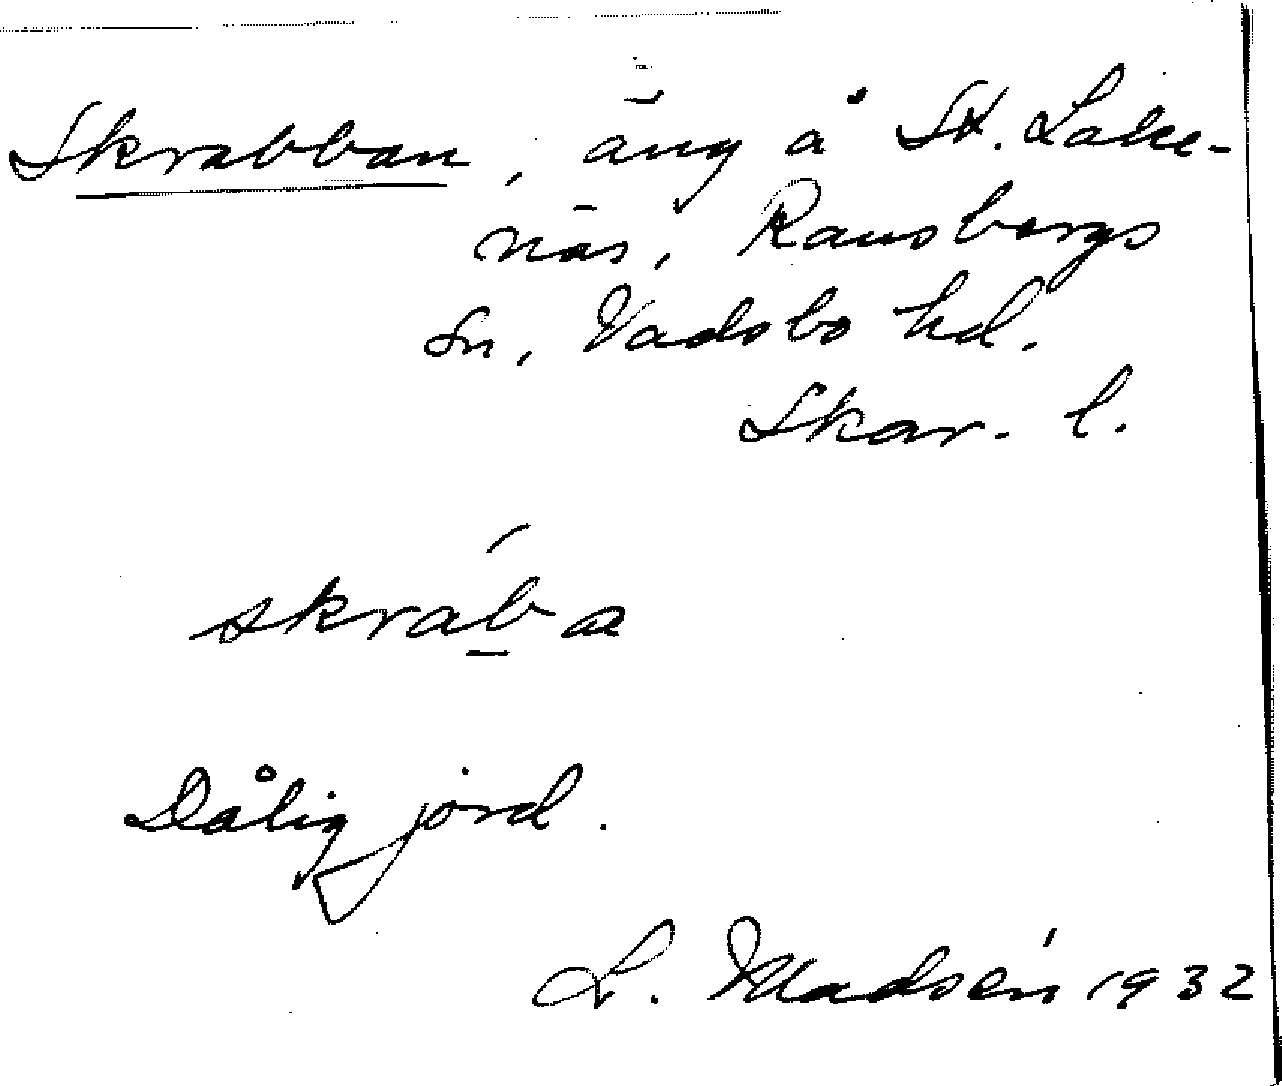 Skrabban, äng å St. Lake-
näs, Ransbergs
sn, Vadsbo hd.
Skar. l.
skráb̲a
Dålig jord.
L. Madsén 1932